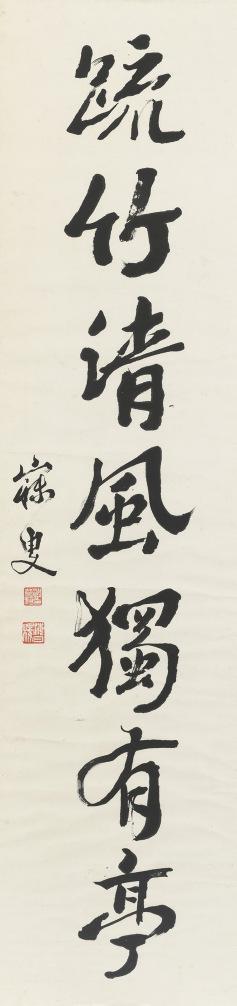 疏竹清風獨有亭
寐叟